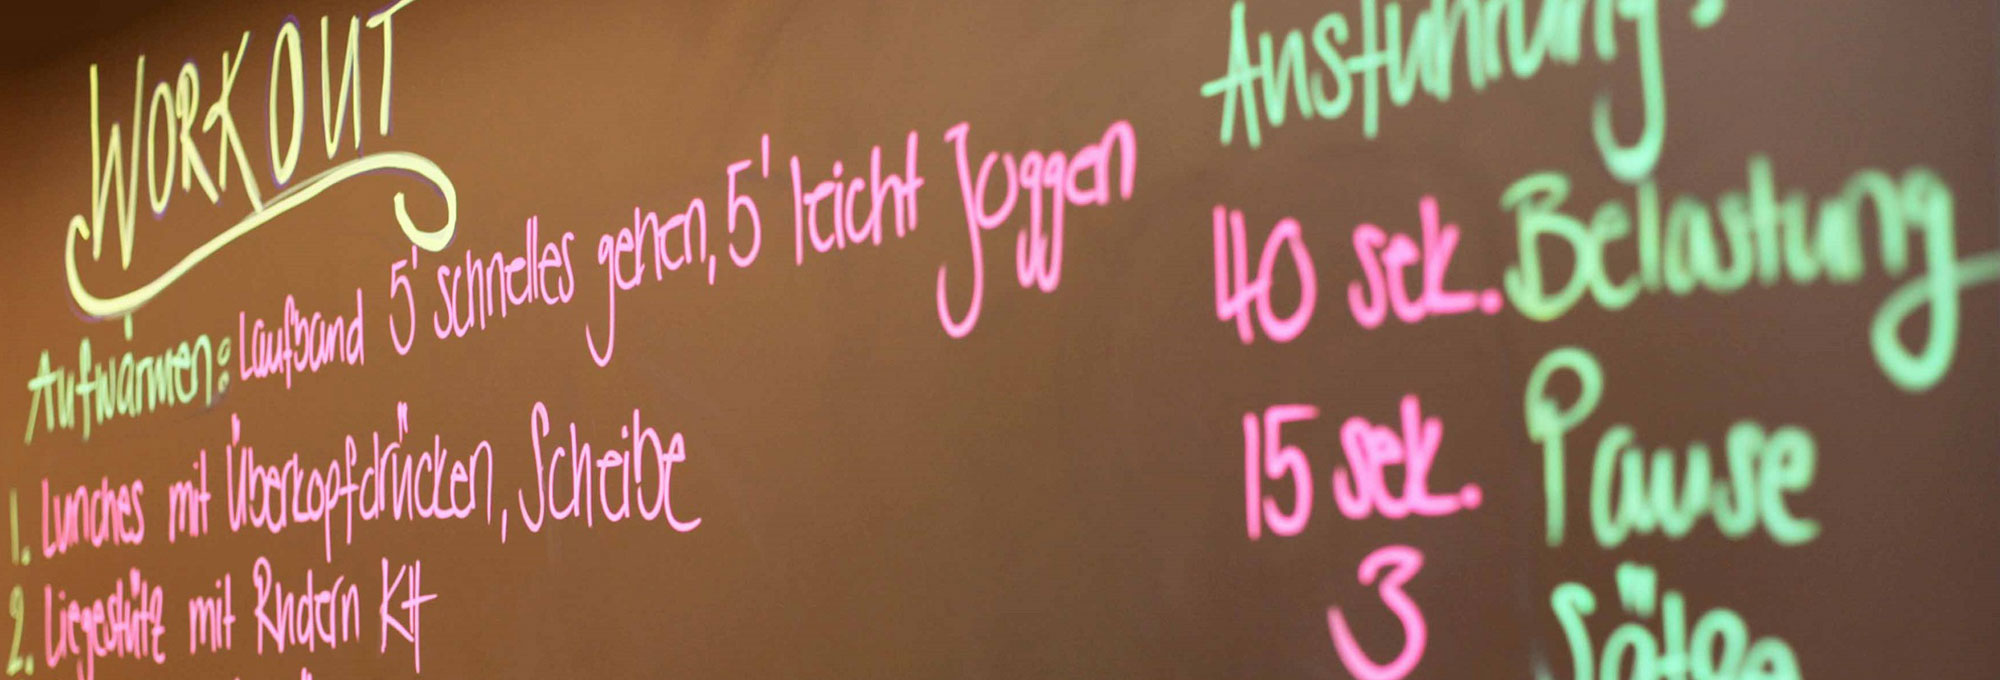 WORKOUT
Aufwärmen: Laufband 5' schnelles gehen, 5' leicht Joggen
1. Lunches mit Überkopfdrücken, Scheibe
2. Liegestütz mit Rudern KH
Ausführung:
40 sek. Belastung
15 sek. Pause
3 Sätze